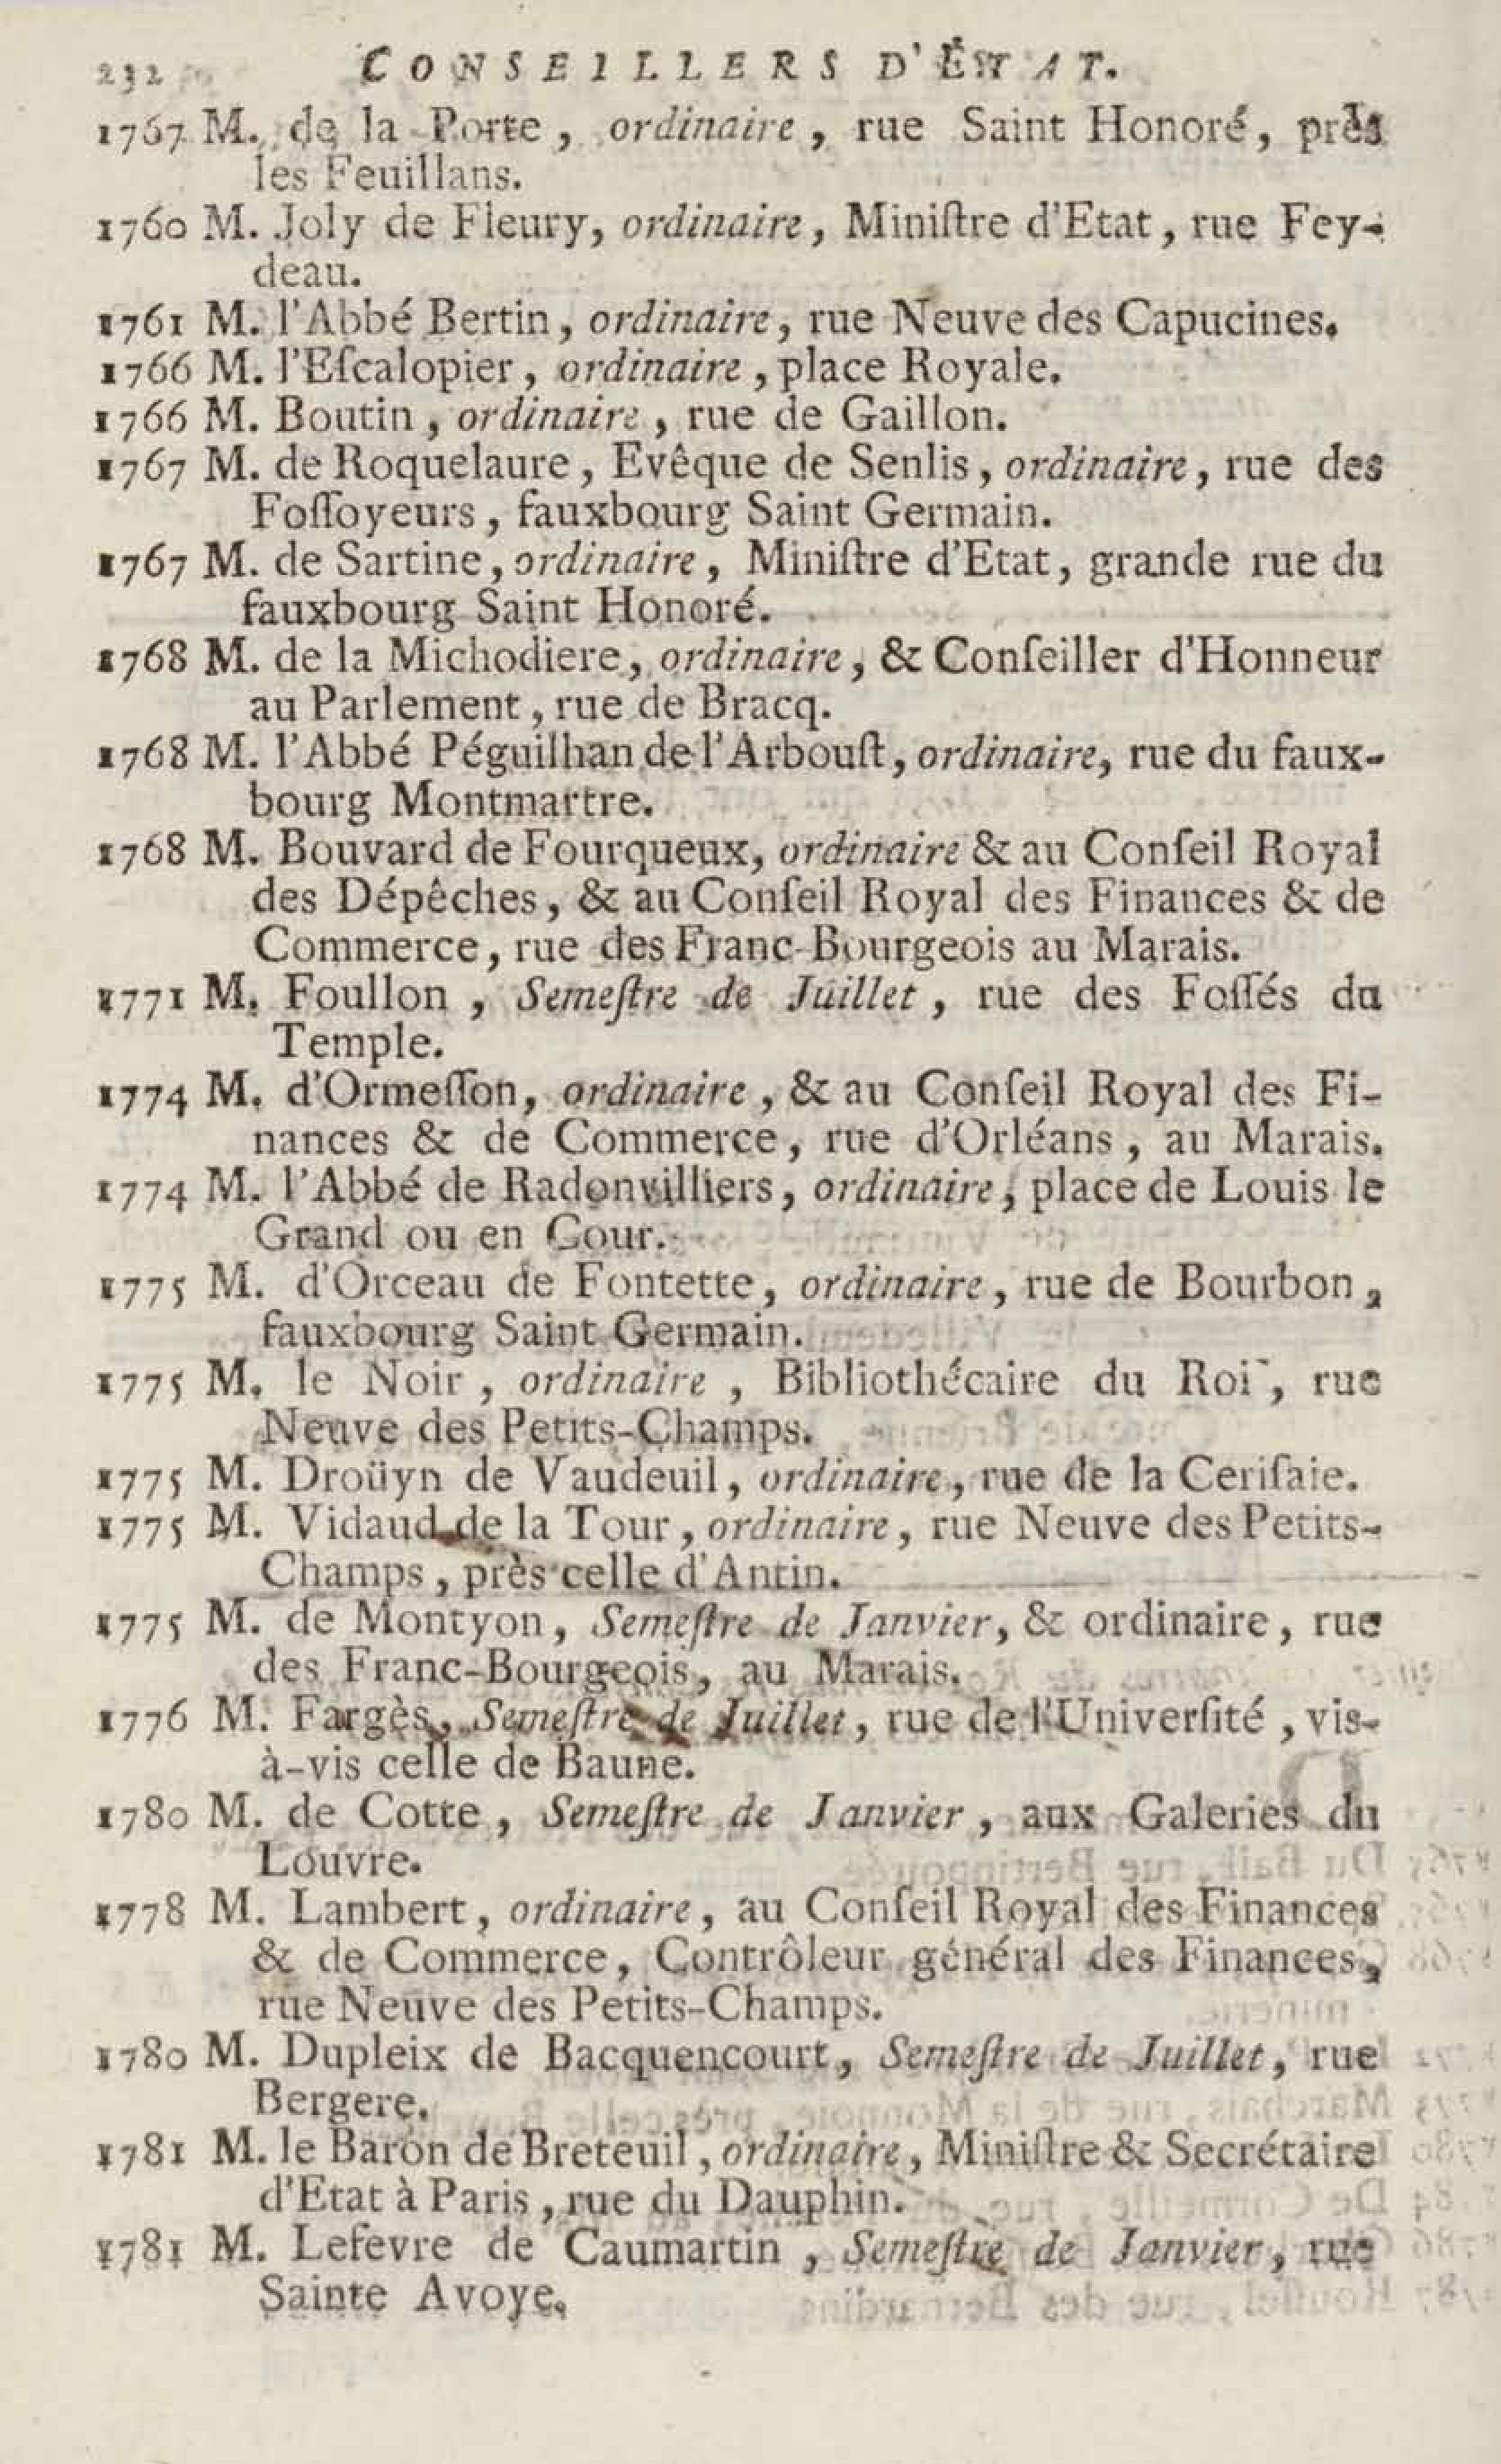 232 CONSEILLERS D'ÉTAT.
1767 M. de la Porte, ordinaire, rue Saint Honoré, près
les Feuillans.
1760 M. Joly de Fleury, ordinaire, Miniſtre d'Etat, rue Fey-
deau.
1761 M. l'Abbé Bertin, ordinaire, rue Neuve des Capucines.
1766 M. l'Eſcalopier, ordinaire, place Royale.
1766 M. Boutin, ordinaire, rue de Gaillon.
1767 M. de Roquelaure, Evêque de Senlis, ordinaire, rue des
Foſſoyeurs, fauxbourg Saint Germain.
1767 M. de Sartine, ordinaire, Miniſtre d'Etat, grande rue du
fauxbourg Saint Honoré.
1768 M. de la Michodiere, ordinaire, & Conſeiller d'Honneur
au Parlement, rue de Bracq.
1768 M. l'Abbé Péguilhan de l'Arbouſt, ordinaire, rue du faux-
bourg Montmartre.
1768 M. Bouvard de Fourqueux, ordinaire & au Conſeil Royal
des Dépêches, & au Conſeil Royal des Finances & de
Commerce, rue des Franc-Bourgeois au Marais.
1771 M. Foullon, Semeſtre de Juillet, rue des Foſſés du
Temple.
1774 M. d'Ormeſſon, ordinaire, & au Conſeil Royal des Fi-
nances & de Commerce, rue d'Orléans, au Marais.
1774 M. l'Abbé de Radonvilliers, ordinaire, place de Louis le
Grand ou en Cour.
1775 M. d'Orceau de Fontette, ordinaire, rue de Bourbon,
fauxbourg Saint Germain.
1775 M. le Noir, ordinaire, Bibliothécaire du Roi, rue
Neuve des Petits-Champs.
1775 M. Droüyn de Vaudeuil, ordinaire, rue de la Ceriſaie.
1775 M. Vidaud de la Tour, ordinaire, rue Neuve des Petits-
Champs, près celle d'Antin.
1775 M. de Montyon, Semeſtre de Janvier, & ordinaire, rue
des Franc-Bourgeois, au Marais.
1776 M. Fargès, Semeſtre de Juillet, rue de l'Univerſité, vis-
à-vis celle de Baune.
1780 M. de Cotte, Semeſtre de Janvier, aux Galeries du
Louvre.
1778 M. Lambert, ordinaire, au Conſeil Royal des Finances
& de Commerce, Contrôleur général des Finances,
rue Neuve des Petits-Champs.
1780 M. Dupleix de Bacquencourt, Semeſtre de Juillet, rue
Bergere.
1781 M. le Baron de Breteuil, ordinaire, Miniſtre & Secrétaire
d'Etat à Paris, rue du Dauphin.
1781 M. Lefevre de Caumartin, Semeſtre de Janvier, rue
Sainte Avoye.